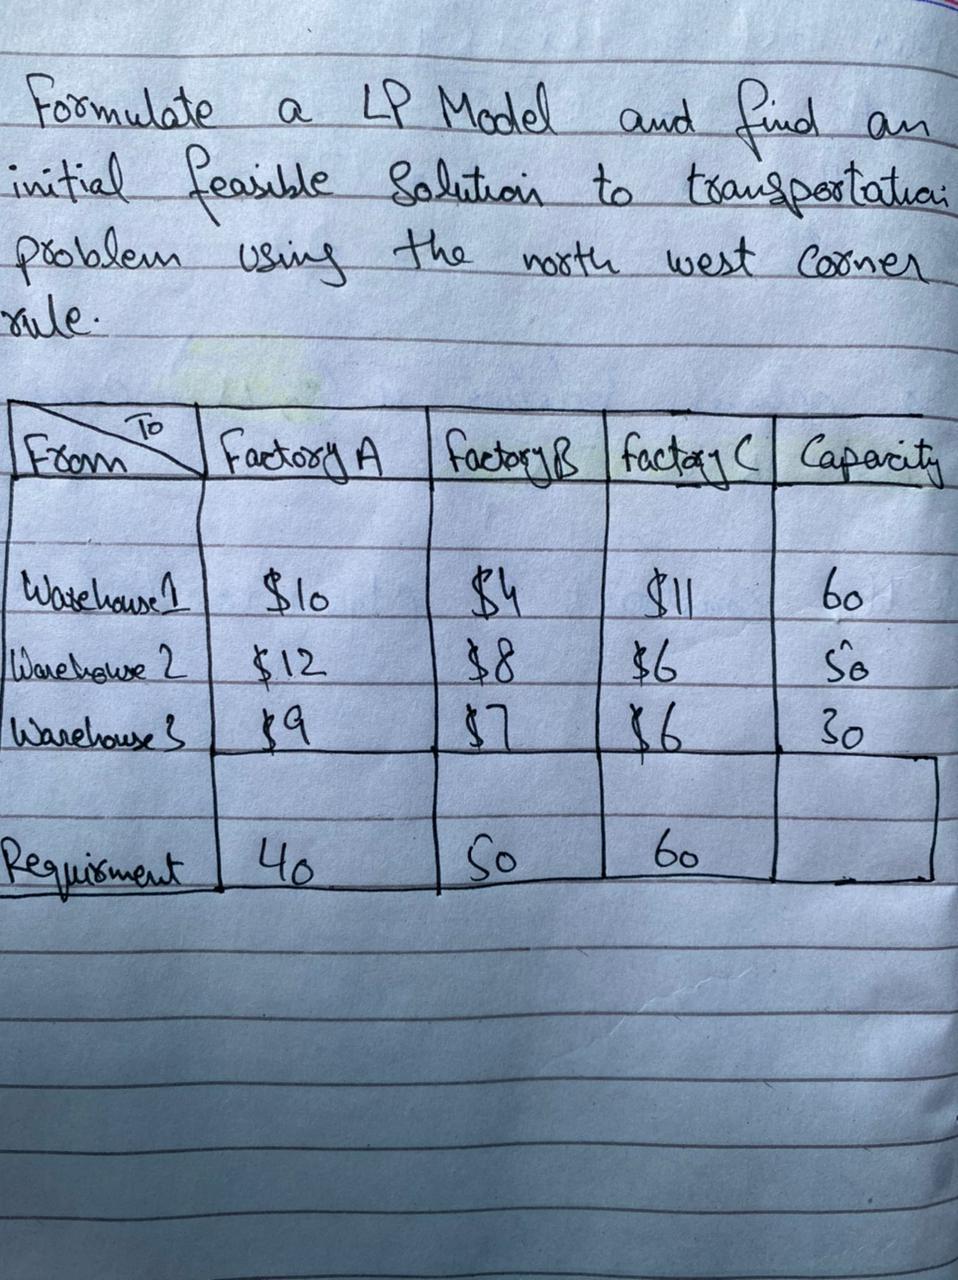 Formulate a LP Model and find an
initial feasible Solution to transportation
problem using the north west corner
rule.
To
From Factory A Factory B Factory C Capacity
Warehouse 1 $10 $4 $11 60
Warehouse 2 $12 $8 $6 50
Warehouse 3 $9 $7 $6 30
Requirment 40 50 60